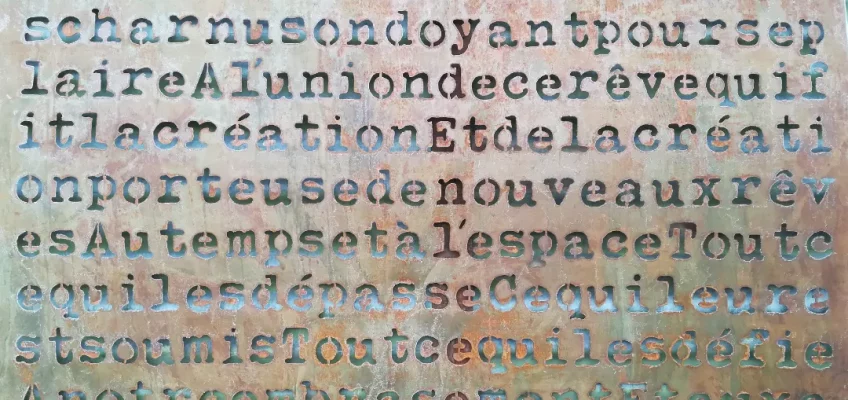 scharnusondoyantpoursep
laireAl'uniondecerêvequif
itlacréationEtdelacréati
onporteusedenouveauxrêv
esAutempsetàl'espaceToutc
equilesdépasseCequileure
stsoumisToutcequilesdéfie
AnotreembrasementEtauxa